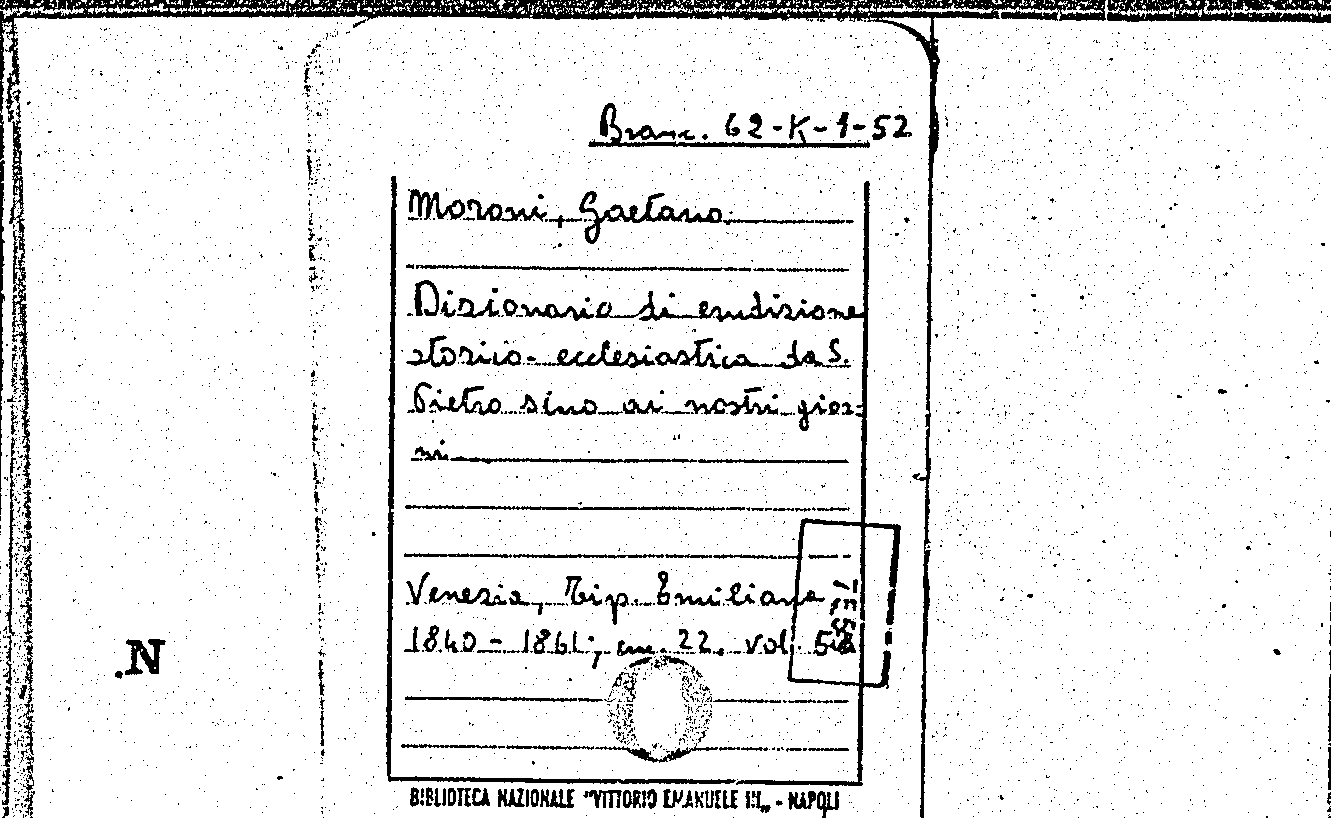 Branc. 62-K-1-52
Moroni, Gaetano
Dizionario di erudizione
storico-ecclesiastica da S.
Pietro sino ai nostri gior=
ni
Venezia, Tip. Emiliana
1840 - 1861; cm. 22. vol.
.N
BIBLIOTECA NAZIONALE "VITTORIO EMANUELE III" - NAPOLI